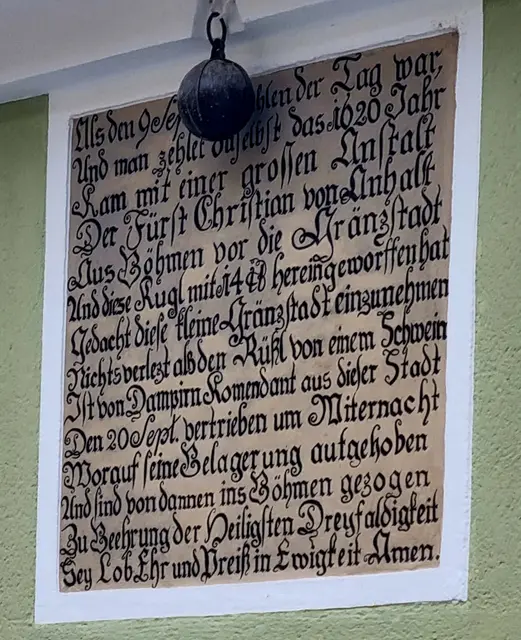 Als den 9 Sep hlen der Tag war,
Und man zehlet daselbst das 1620 Jahr
Kam mit einer grossen Anstalt
Der Fürst Christian von Anhalt
Aus Böhmen vor die Gränzstadt
Und diese Kugl mit 14 ℔ hereingeworffen hat
Gedacht diese kleine Gränzstadt einzunehmen
Nichts verlezt als den Rüßl von einem Schwein
Ist von Dampirn Komendant aus dieser Stadt
Den 20 Sept. vertrieben um Miternacht
Worauf seine Belagerung aufgehoben
Und sind von dannen ins Böhmen gezogen
Zu Beehrung der Heiligsten Dreyfaldigkeit
Sey Lob, Ehr und Preiß in Ewigkeit Amen.